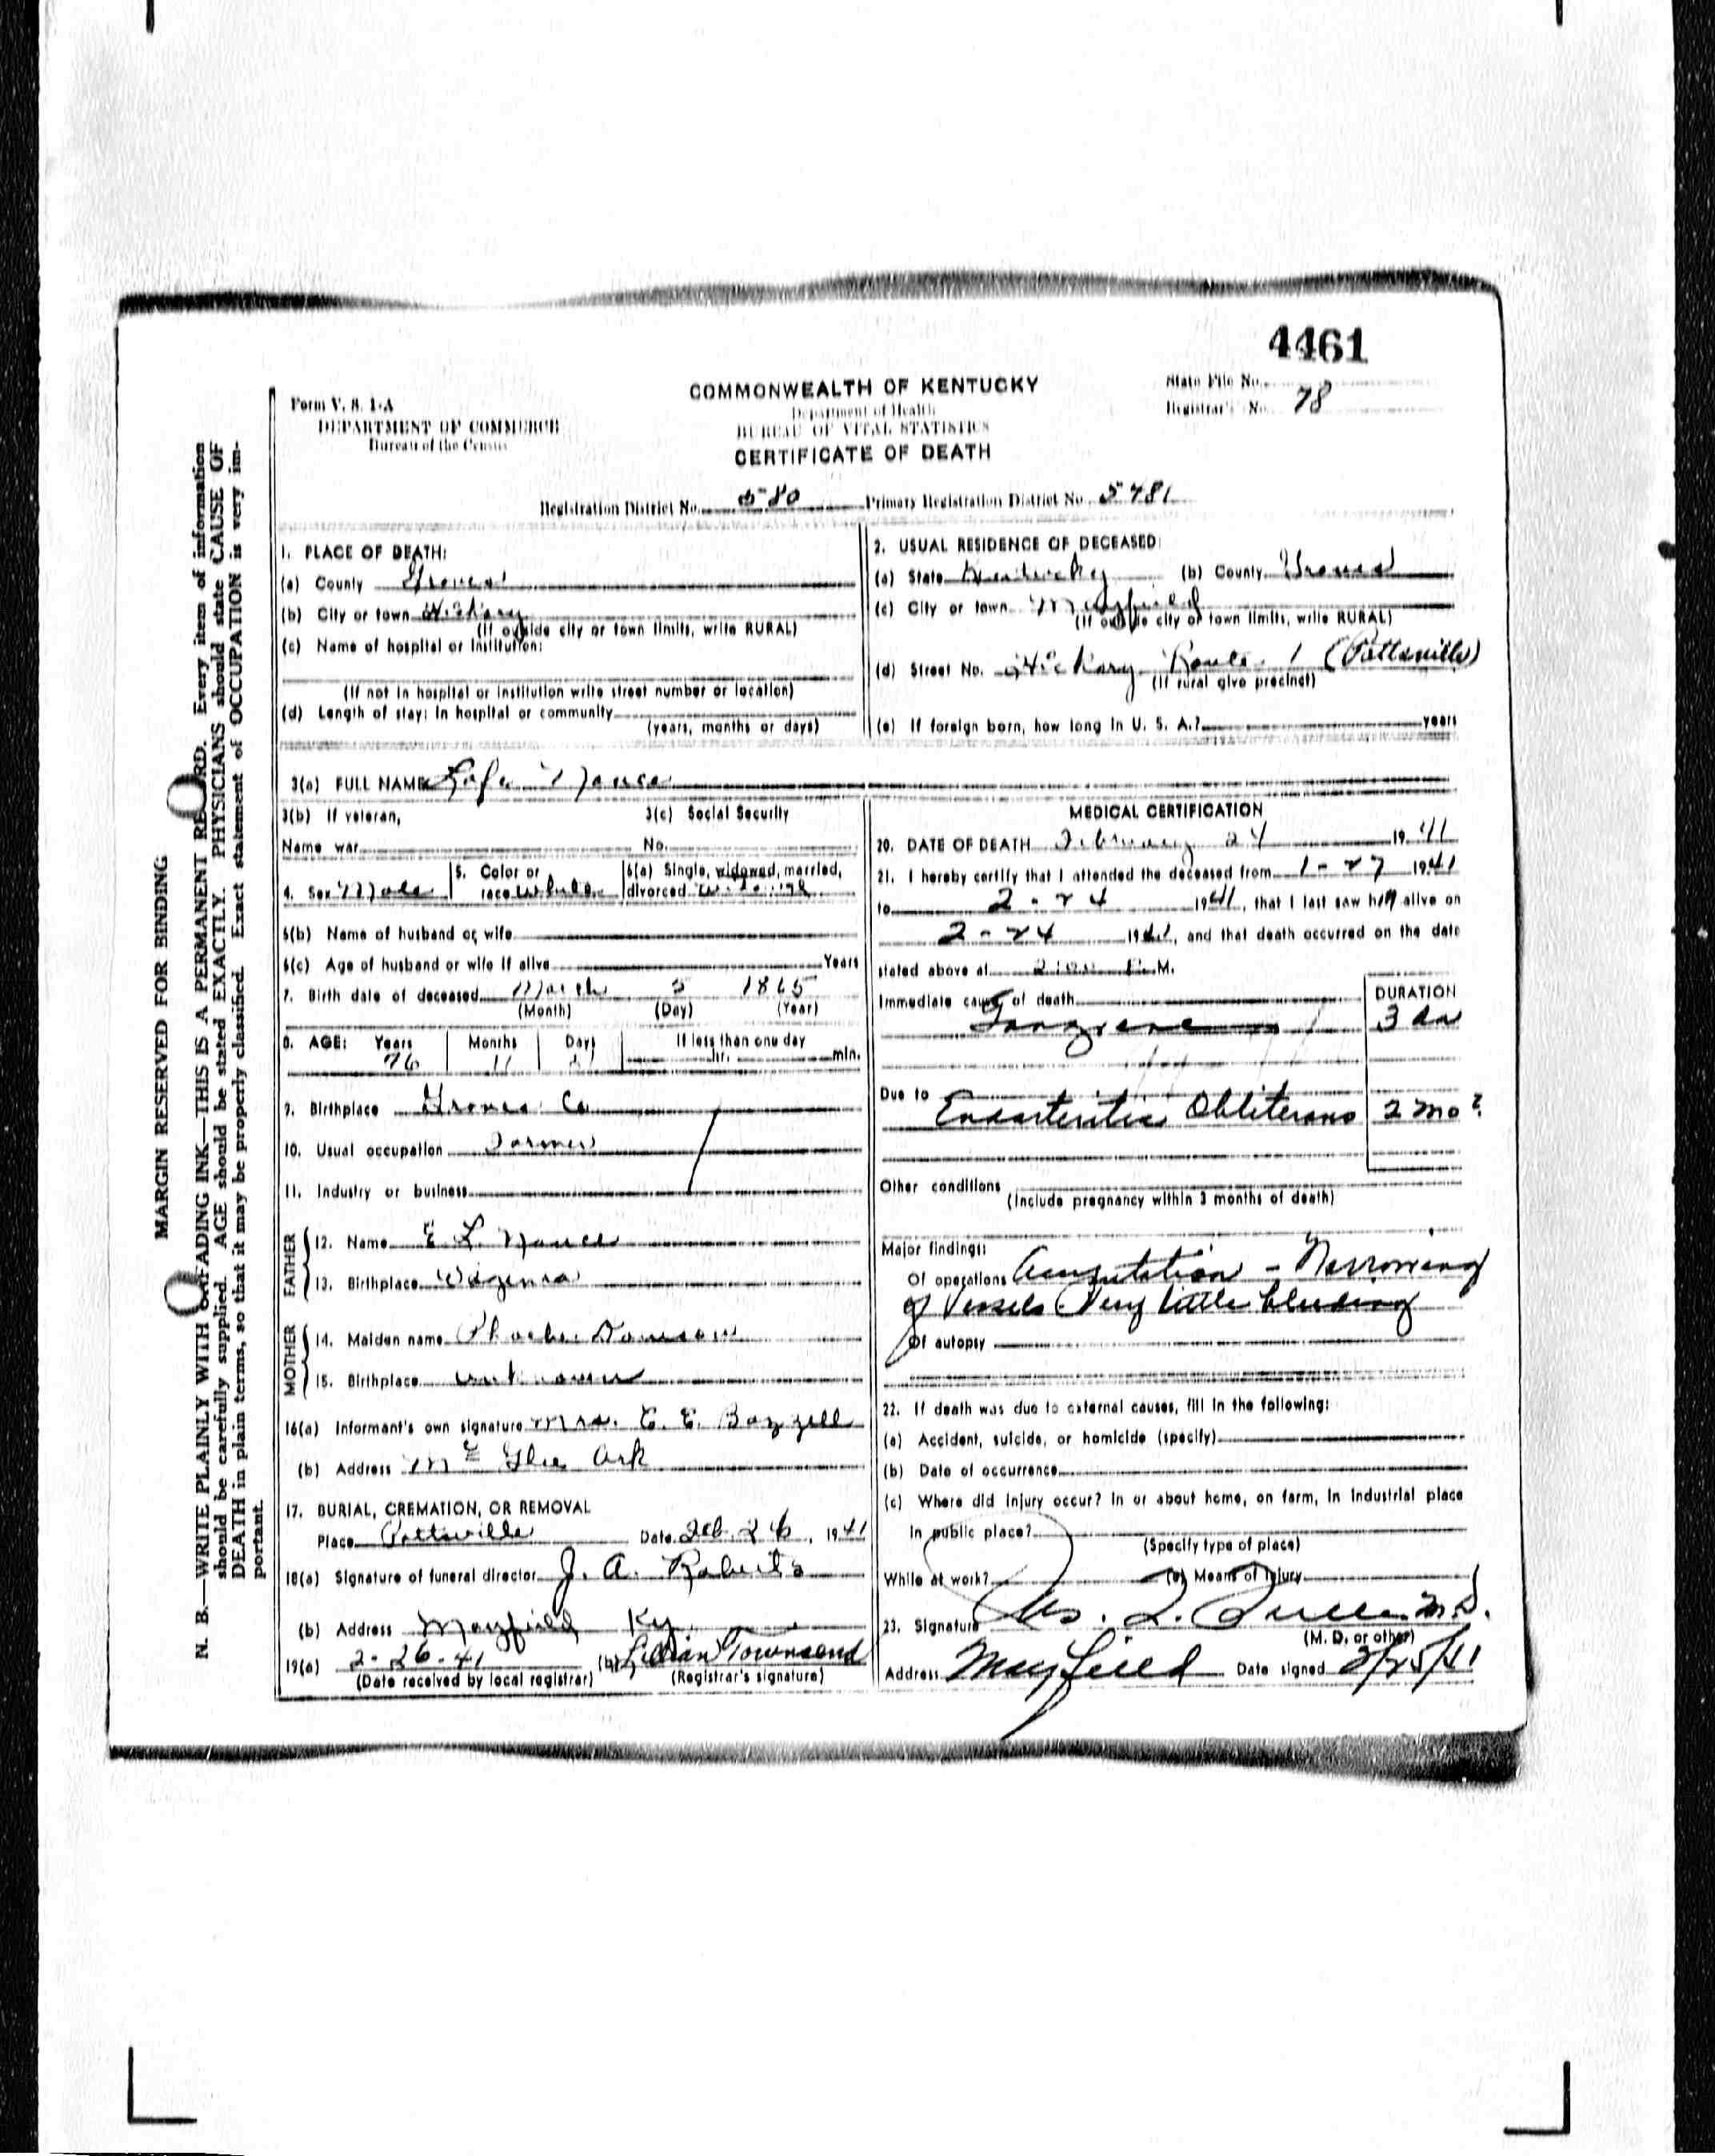 4461
Form V. S. 1-A
DEPARTMENT OF COMMERCE
Bureau of the Census
COMMONWEALTH OF KENTUCKY
Department of Health
BUREAU OF VITAL STATISTICS
CERTIFICATE OF DEATH
State File No.
Registrar's No. 78
Registration District No. 580 Primary Registration District No. 5481
MARGIN RESERVED FOR BINDING
N. B.—WRITE PLAINLY WITH UNFADING INK—THIS IS A PERMANENT RECORD. Every item of information
should be carefully supplied. AGE should be stated EXACTLY. PHYSICIANS should state CAUSE OF
DEATH in plain terms, so that it may be properly classified. Exact statement of OCCUPATION is very im-
portant.
1. PLACE OF DEATH:
(a) County Graves
(b) City or town Hickory
(If outside city or town limits, write RURAL)
(c) Name of hospital or Institution:
(If not in hospital or institution write street number or location)
(d) Length of stay: In hospital or community
(years, months or days)
2. USUAL RESIDENCE OF DECEASED:
(a) State Kentucky (b) County Graves
(c) City or town Mayfield
(If outside city or town limits, write RURAL)
(d) Street No. Hickory Route 1 (Pottsville)
(If rural give precinct)
(e) If foreign born, how long in U. S. A.? years
3(a) FULL NAME Rafe Nance
3(b) If veteran, 3(c) Social Security
Name war No.
4. Sex Male 5. Color or race White 6(a) Single, widowed, married, divorced
6(b) Name of husband or wife
6(c) Age of husband or wife if alive Years
7. Birth date of deceased March 3 1865
(Month) (Day) (Year)
8. AGE: Years Months Days If less than one day
76 11 hr. min.
9. Birthplace Graves Co
10. Usual occupation Farmer
11. Industry or business
FATHER
12. Name E L Nance
13. Birthplace Virginia
MOTHER
14. Maiden name Phoebe
15. Birthplace unknown
16(a) Informant's own signature Mrs. E. E. Bazzell
(b) Address Mc Ghee Ark
17. BURIAL, CREMATION, OR REMOVAL
Place Pottsville Date Feb. 26, 1941
18(a) Signature of funeral director J. A. Roberts
(b) Address Mayfield Ky
19(a) 2-26-41 (b) Lillian Townsend
(Date received by local registrar) (Registrar's signature)
MEDICAL CERTIFICATION
20. DATE OF DEATH February 24 1941
21. I hereby certify that I attended the deceased from 1-27 1941
to 2-24 1941, that I last saw him alive on
2-24 1941, and that death occurred on the date
stated above at 2:00 P. M.
Immediate cause of death DURATION
Gangrene 3 da
Due to Endarteritis Obliterans 2 mo?
Other conditions
(Include pregnancy within 3 months of death)
Major findings:
Of operations Amputation - Narrowing
of Vessels Very little bleeding
Of autopsy
22. If death was due to external causes, fill in the following:
(a) Accident, suicide, or homicide (specify)
(b) Date of occurrence
(c) Where did injury occur? In or about home, on farm, in industrial place
In public place?
(Specify type of place)
While at work? (e) Means of Injury
23. Signature M.D.
(M. D. or other)
Address Mayfield Date signed 2/25/41